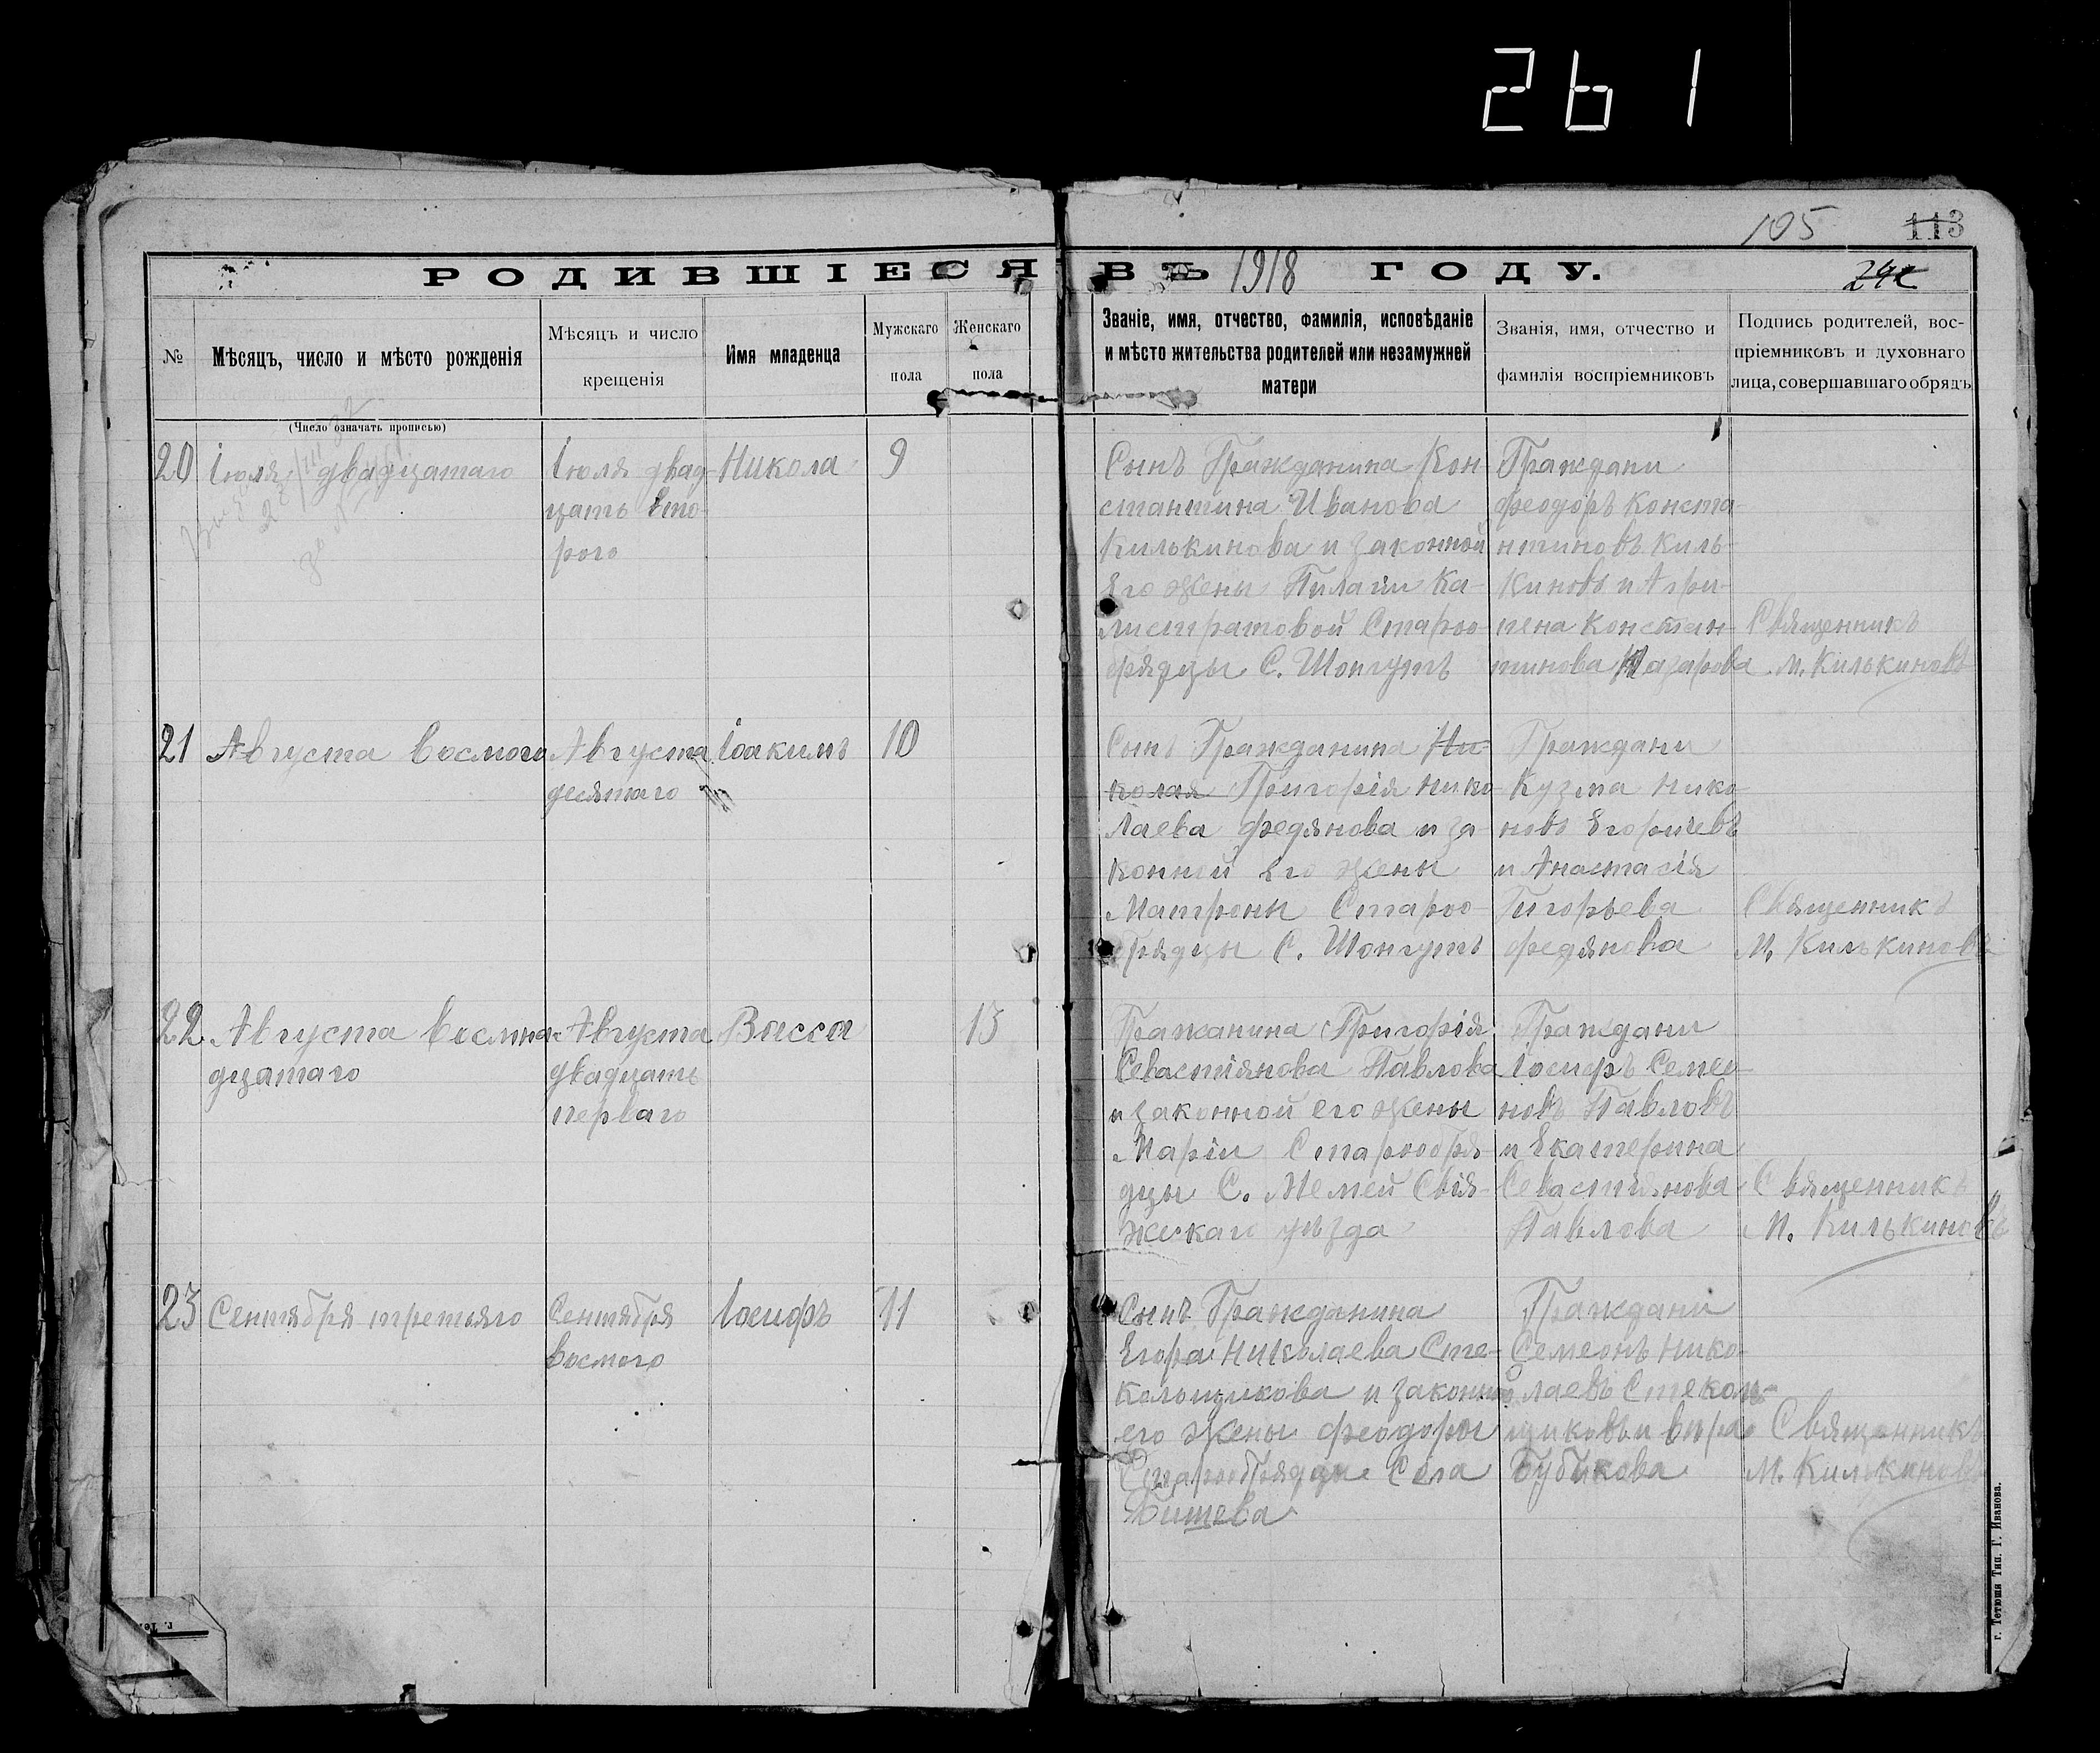 261
105
113
РОДИВШІЕСЯ ВЪ 1918 ГОДУ.
№
Мѣсяцъ, число и мѣсто рожденія
Мѣсяцъ и число
крещенія
Имя младенца
Мужскаго
пола
Женскаго
пола
Званіе, имя, отчество, фамилія, исповѣданіе
и мѣсто жительства родителей или незамужней
матери
Званія, имя, отчество и
фамилія воспріемниковъ
Подпись родителей, вос-
пріемниковъ и духовнаго
лица, совершавшаго обрядъ
(Число означать прописью)
20
Іюля двадцатаго
Іюля двад-
цать вто-
рого
Никола
9
Сынъ Гражданина Кон-
стантина Иванова
Килькинова и законной
Его жены Пилагіи Ка-
листратовой Староо-
брядцы С. Шонгутъ
Граждани
Феодоръ Конста-
нтиновъ Киль-
киновъ и Агри-
пена Констан-
тинова Назарова
Священникъ
М. Килькиновъ
21
Августа восмого
Августа
десятаго
Іоакимъ
10
Сынъ Гражданина Ни-
колая Григорія Нико-
лаева Федянова и за-
конной его жены
Матроны Староо-
брядцы С. Шонгутъ
Граждани
Кузма Нико-
новъ Егорычевъ
и Анастасія
Гигорьева
Федянова
Священникъ
М. Килькиновъ
22
Августа восмна-
дцатаго
Августа
двадцать
перваго
Васса
13
Гражанина Григорія
Севастіянова Павлова
и законной его жены
Маріи Старообря-
дцы С. Мемей Свія-
жскаго уѣзда
Граждани
Іосифъ Семео-
новъ Павловъ
и Екатерина
Севастиянова
Павлова
Священникъ
М. Килькиновъ
23
Сентября третьяго
Сентября
восмого
Іосифъ
11
Сынъ Гражданина
Егора Николаева Сте-
кольщикова и законной
его жены Феодоры
Старообрядцы Села
Бишева
Граждани
Семеонъ Нико-
лаевъ Стеколь-
щиковъ и Вѣра
Бубикова
Священникъ
М. Килькиновъ
г. Тетюши Тип. Г. Иванова.